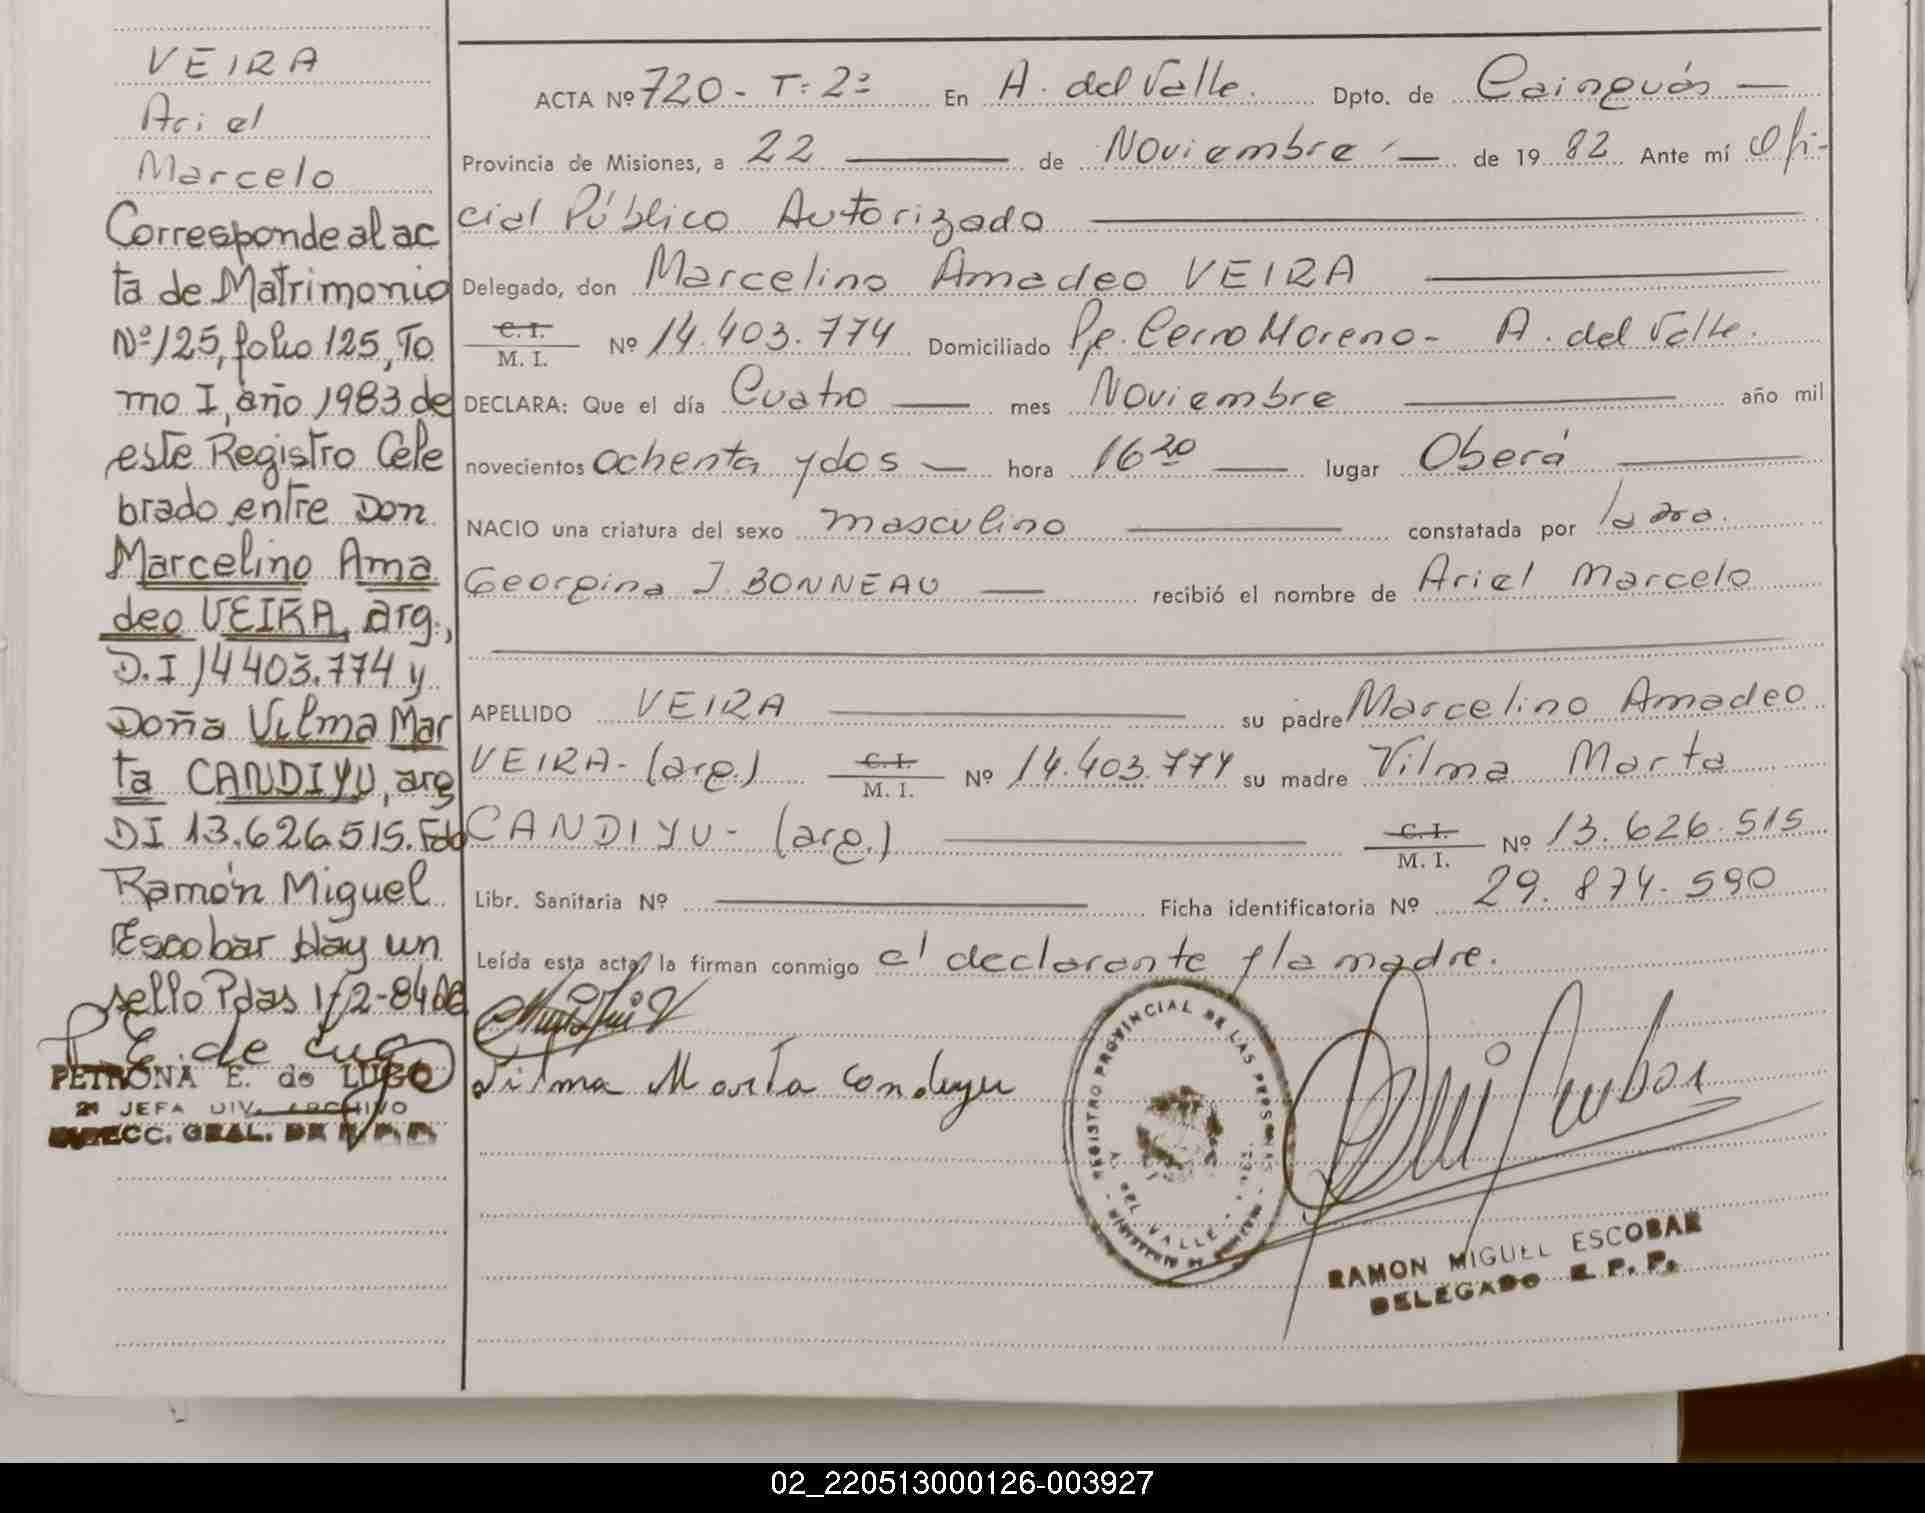 VEIRA
Ariel
Marcelo
Corresponde al ac
ta de Matrimonio
Nº 125, folio 125, To
mo I, año 1983 de
este Registro Cele
brado entre Don
Marcelino Ama
deo VEIRA, arg.,
D.I 14403.774 y
Doña Vilma Mar
ta CANDIYU, arg
DI 13.626.515. Fdo
Ramón Miguel
Escobar Hay un
sello Pdas 1/2-84
P. E. de Lugo
PETRONA E. de LUGO
2ª JEFA DIV. ARCHIVO
DIRECC. GRAL. DE R. P. P.
ACTA Nº 720 - T: 2º En A. del Valle. Dpto. de Cainguás —
Provincia de Misiones, a 22 — de Noviembre — de 19 82 Ante mí Ofi-
cial Público Autorizado —
Delegado, don Marcelino Amadeo VEIRA —
C. I.
M. I. Nº 14.403.774 Domiciliado Pje. Cerro Moreno - A. del Valle.
DECLARA: Que el día Cuatro — mes Noviembre — año mil
novecientos ochenta y dos — hora 16 20 — lugar Oberá —
NACIO una criatura del sexo masculino — constatada por la dra.
Georgina J. BONNEAU — recibió el nombre de Ariel Marcelo
APELLIDO VEIRA — su padre Marcelino Amadeo
VEIRA - (arg.) C. I. M. I. Nº 14.403.774 su madre Vilma Marta
CANDIYU - (arg.) — C. I. M. I. Nº 13.626.515
Libr. Sanitaria Nº — Ficha identificatoria Nº 29.874.590
Leída esta acta, la firman conmigo el declarante y la madre.
Vilma Marta Candiyu
REGISTRO PROVINCIAL DE LAS PERSONAS
A. DEL VALLE
RAMON MIGUEL ESCOBAR
DELEGADO R. P. P.
02_220513000126-003927